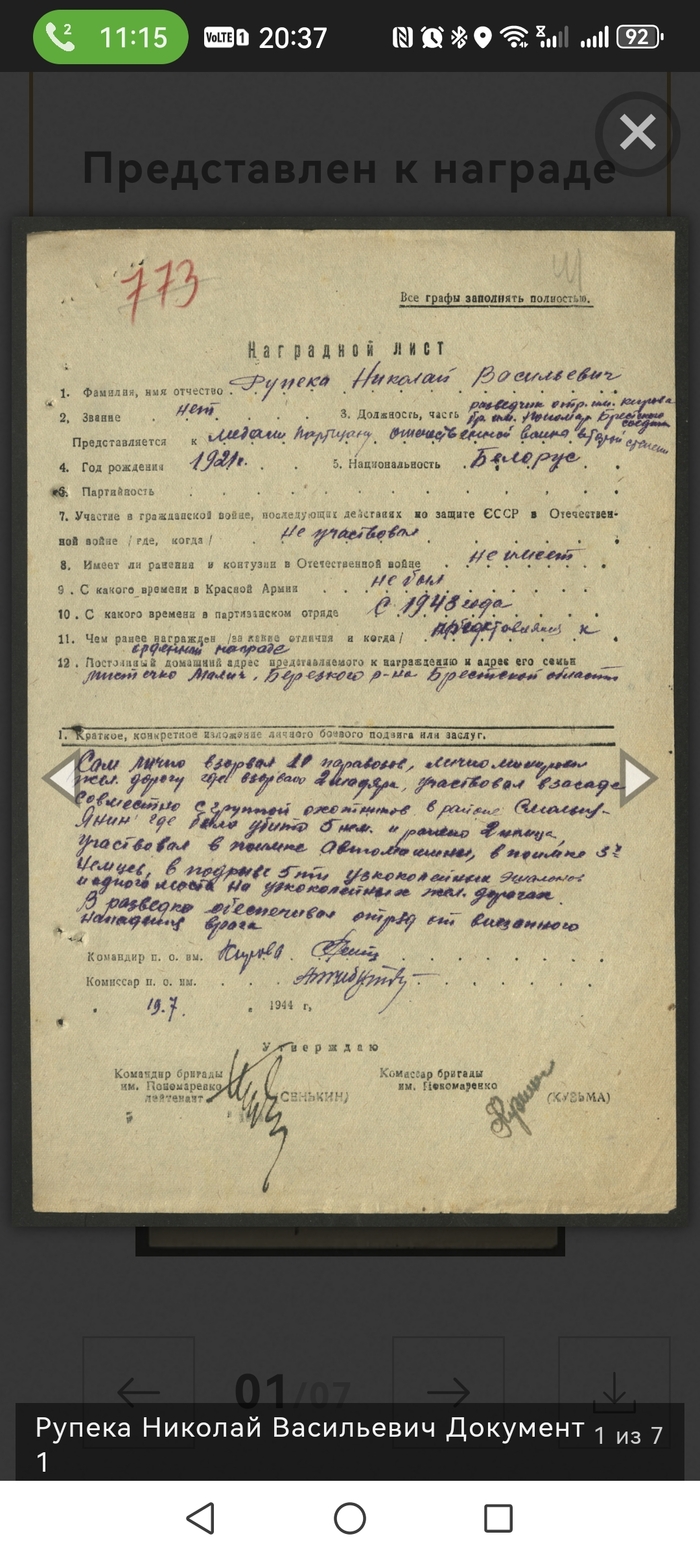 2 11:15 VoLTE 1 20:37 92
Представлен к награде
773
Все графы заполнять полностью.
Наградной лист
1. Фамилия, имя отчество Рупека Николай Васильевич
разведчик отр. им. Кирова
2, Звание нет 3. Должность, часть бр. им. Пономар Брестского
соедин
Представляется к медали Партизану отечественной войны второй степени
4. Год рождения 1921г. 5. Национальность Белорус
6. Партийность
7. Участие в гражданской войне, последующих действиях по защите СССР в Отечествен-
ной войне /где, когда/ Не участвовал
8. Имеет ли ранения и контузии в Отечественной войне не имеет
9. С какого времени в Красной Армии не был
10. С какого времени в партизанском отряде С 1943 года
11. Чем ранее награжден /за какие отличия и когда/ представлялся к
орденной награде
12. Постоянный домашний адрес представляемого к награждению и адрес его семьи
местечко , Березкого р-на Брестской области
1. Краткое, конкретное изложение личного боевого подвига или заслуг.
Сам лично взорвал паровозов, лично минировал
жел. дорогу где взорвано 2 , участвовал в засаде
совместно с группой охотников в районе
где было убито 5 нем. и ранено 2
участвовал в поимке автомашины, в поимке 3х
немцев, в подрыве 5ти узкоколейных эшалонов
и одного моста на узкоколейных жел. дорогах.
В разведке обеспечивал отряд от внезапного
нападения врага
Командир п. о. им. Кирова
Комиссар п. о. им.
19.7. 1944 г,
Утверждаю
Командир бригады Комиссар бригады
им. Пономаренко им. Пономаренко
лейтенант (СЕНЬКИН) (КУЗЬМА)
01/07
Рупека Николай Васильевич Документ 1 из 7
1